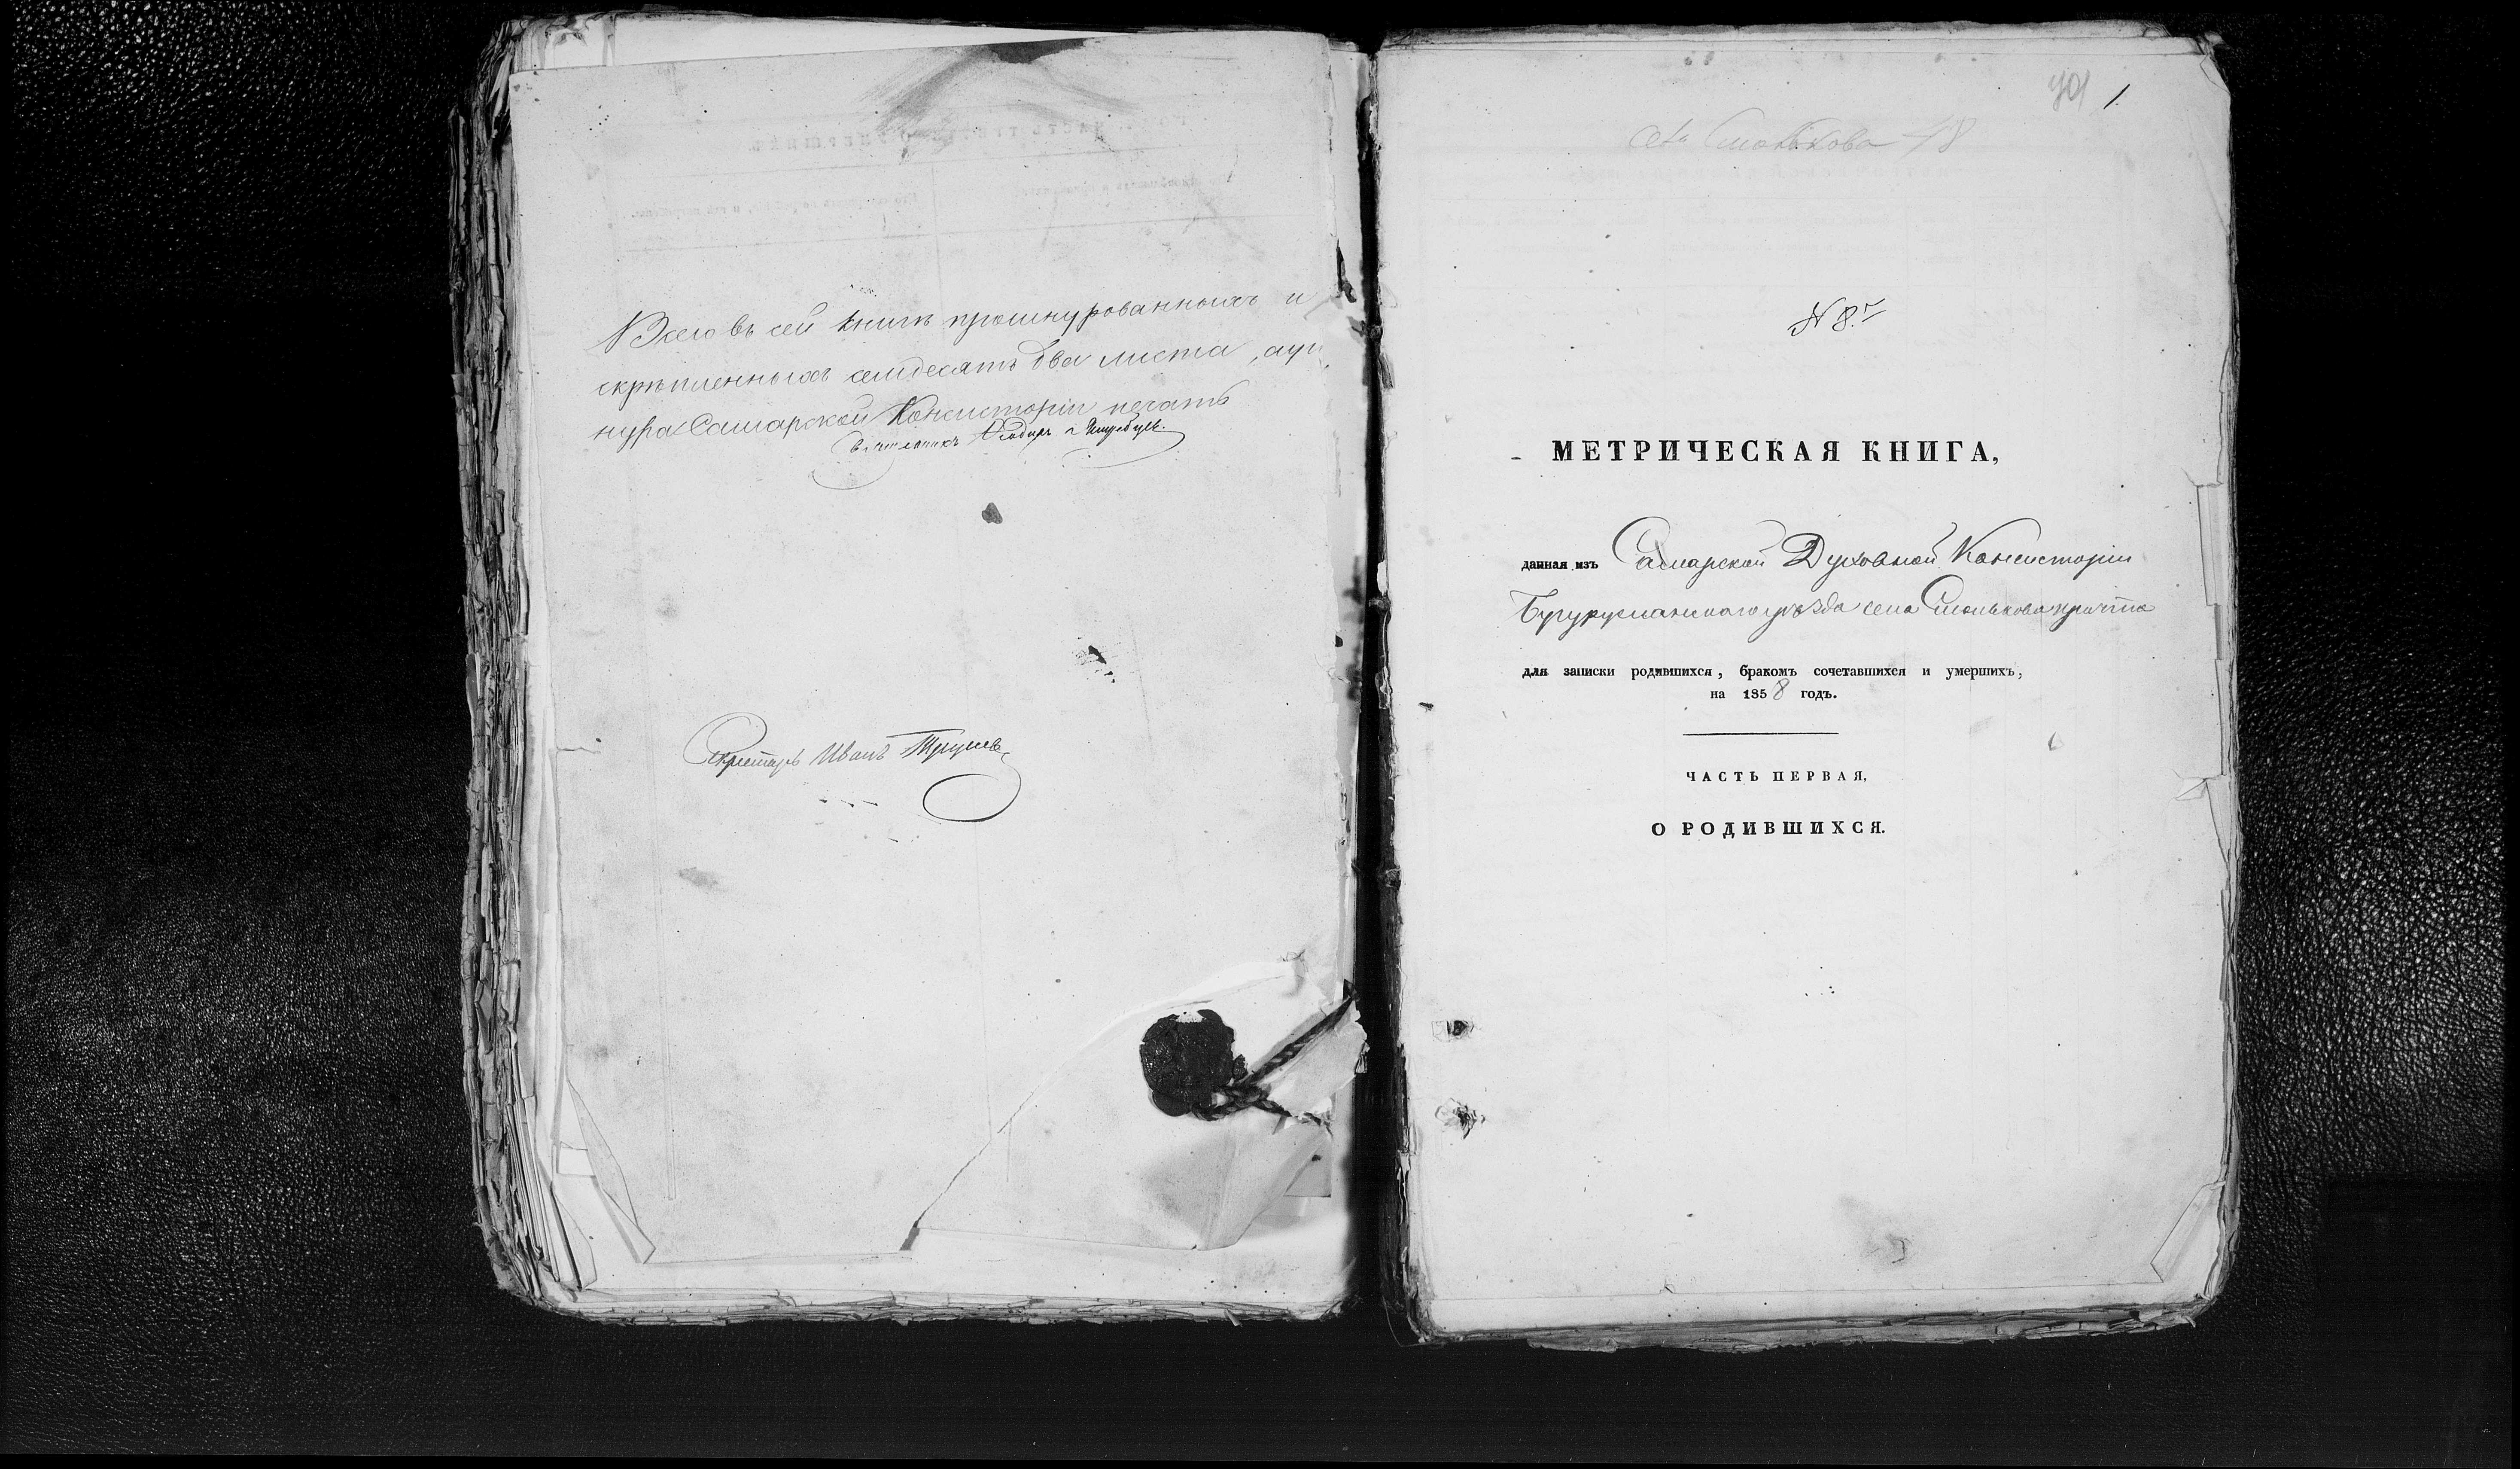 Всего въ сей книгѣ прошнурованныхъ и
скрѣпленныхъ семдесятъ два листа, а у
нура Самарской Консисторіи печать
Секретарь Иванъ
1.
село Смолькова 78
№ 8.
МЕТРИЧЕСКАЯ КНИГА,
данная изъ Самарской Духовной Консисторіи
Бугурусланскаго уѣзда села Смолькова причта
для записки родившихся, бракомъ сочетавшихся и умершихъ,
на 1858 годъ.
ЧАСТЬ ПЕРВАЯ,
О РОДИВШИХСЯ.